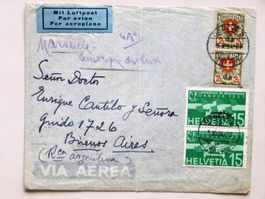 Mit Luftpost
Par avion
Per aeroplano
Marseille
Señor Doctor
Enrique Cantilo y Señora
Guido 1726
Buenos Aires
(Rca Argentina)
VIA AEREA
HELVETIA 15
HELVETIA 15